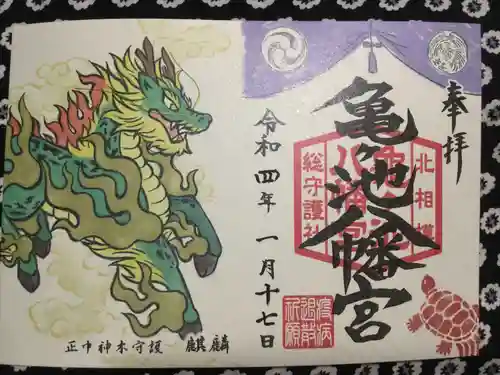 奉拝
北相模
亀ヶ池八幡宮
総守護社
疫病
退散
祈願
令和四年 一月十七日
正中神木守護 麒麟